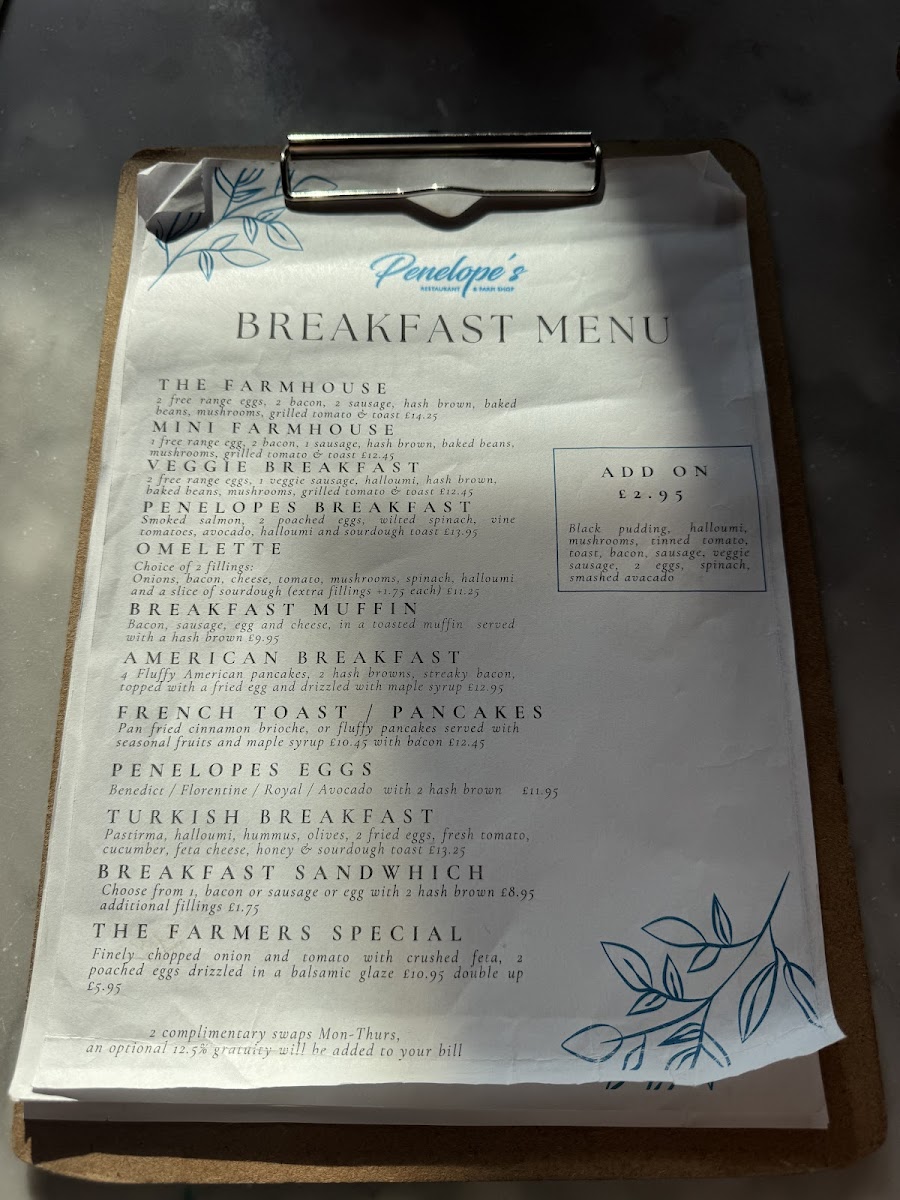 Penelope's
RESTAURANT & FARM SHOP
BREAKFAST MENU
THE FARMHOUSE
2 free range eggs, 2 bacon, 2 sausage, hash brown, baked
beans, mushrooms, grilled tomato & toast £14.25
MINI FARMHOUSE
1 free range egg, 2 bacon, 1 sausage, hash brown, baked beans,
mushrooms, grilled tomato & toast £12.45
VEGGIE BREAKFAST
2 free range eggs, 1 veggie sausage, halloumi, hash brown,
baked beans, mushrooms, grilled tomato & toast £12.45
PENELOPES BREAKFAST
Smoked salmon, 2 poached eggs, wilted spinach, vine
tomatoes, avocado, halloumi and sourdough toast £13.95
OMELETTE
Choice of 2 fillings:
Onions, bacon, cheese, tomato, mushrooms, spinach, halloumi
and a slice of sourdough (extra fillings +1.75 each) £11.25
BREAKFAST MUFFIN
Bacon, sausage, egg and cheese, in a toasted muffin served
with a hash brown £9.95
AMERICAN BREAKFAST
4 Fluffy American pancakes, 2 hash browns, streaky bacon,
topped with a fried egg and drizzled with maple syrup £12.95
FRENCH TOAST / PANCAKES
Pan fried cinnamon brioche, or fluffy pancakes served with
seasonal fruits and maple syrup £10.45 with bacon £12.45
PENELOPES EGGS
Benedict / Florentine / Royal / Avocado with 2 hash brown £11.95
TURKISH BREAKFAST
Pastirma, halloumi, hummus, olives, 2 fried eggs, fresh tomato,
cucumber, feta cheese, honey & sourdough toast £13.25
BREAKFAST SANDWHICH
Choose from 1, bacon or sausage or egg with 2 hash brown £8.95
additional fillings £1.75
THE FARMERS SPECIAL
Finely chopped onion and tomato with crushed feta, 2
poached eggs drizzled in a balsamic glaze £10.95 double up
£5.95
2 complimentary swaps Mon-Thurs,
an optional 12.5% gratuity will be added to your bill
ADD ON
£2.95
Black pudding, halloumi,
mushrooms, tinned tomato,
toast, bacon, sausage, veggie
sausage, 2 eggs, spinach,
smashed avacado